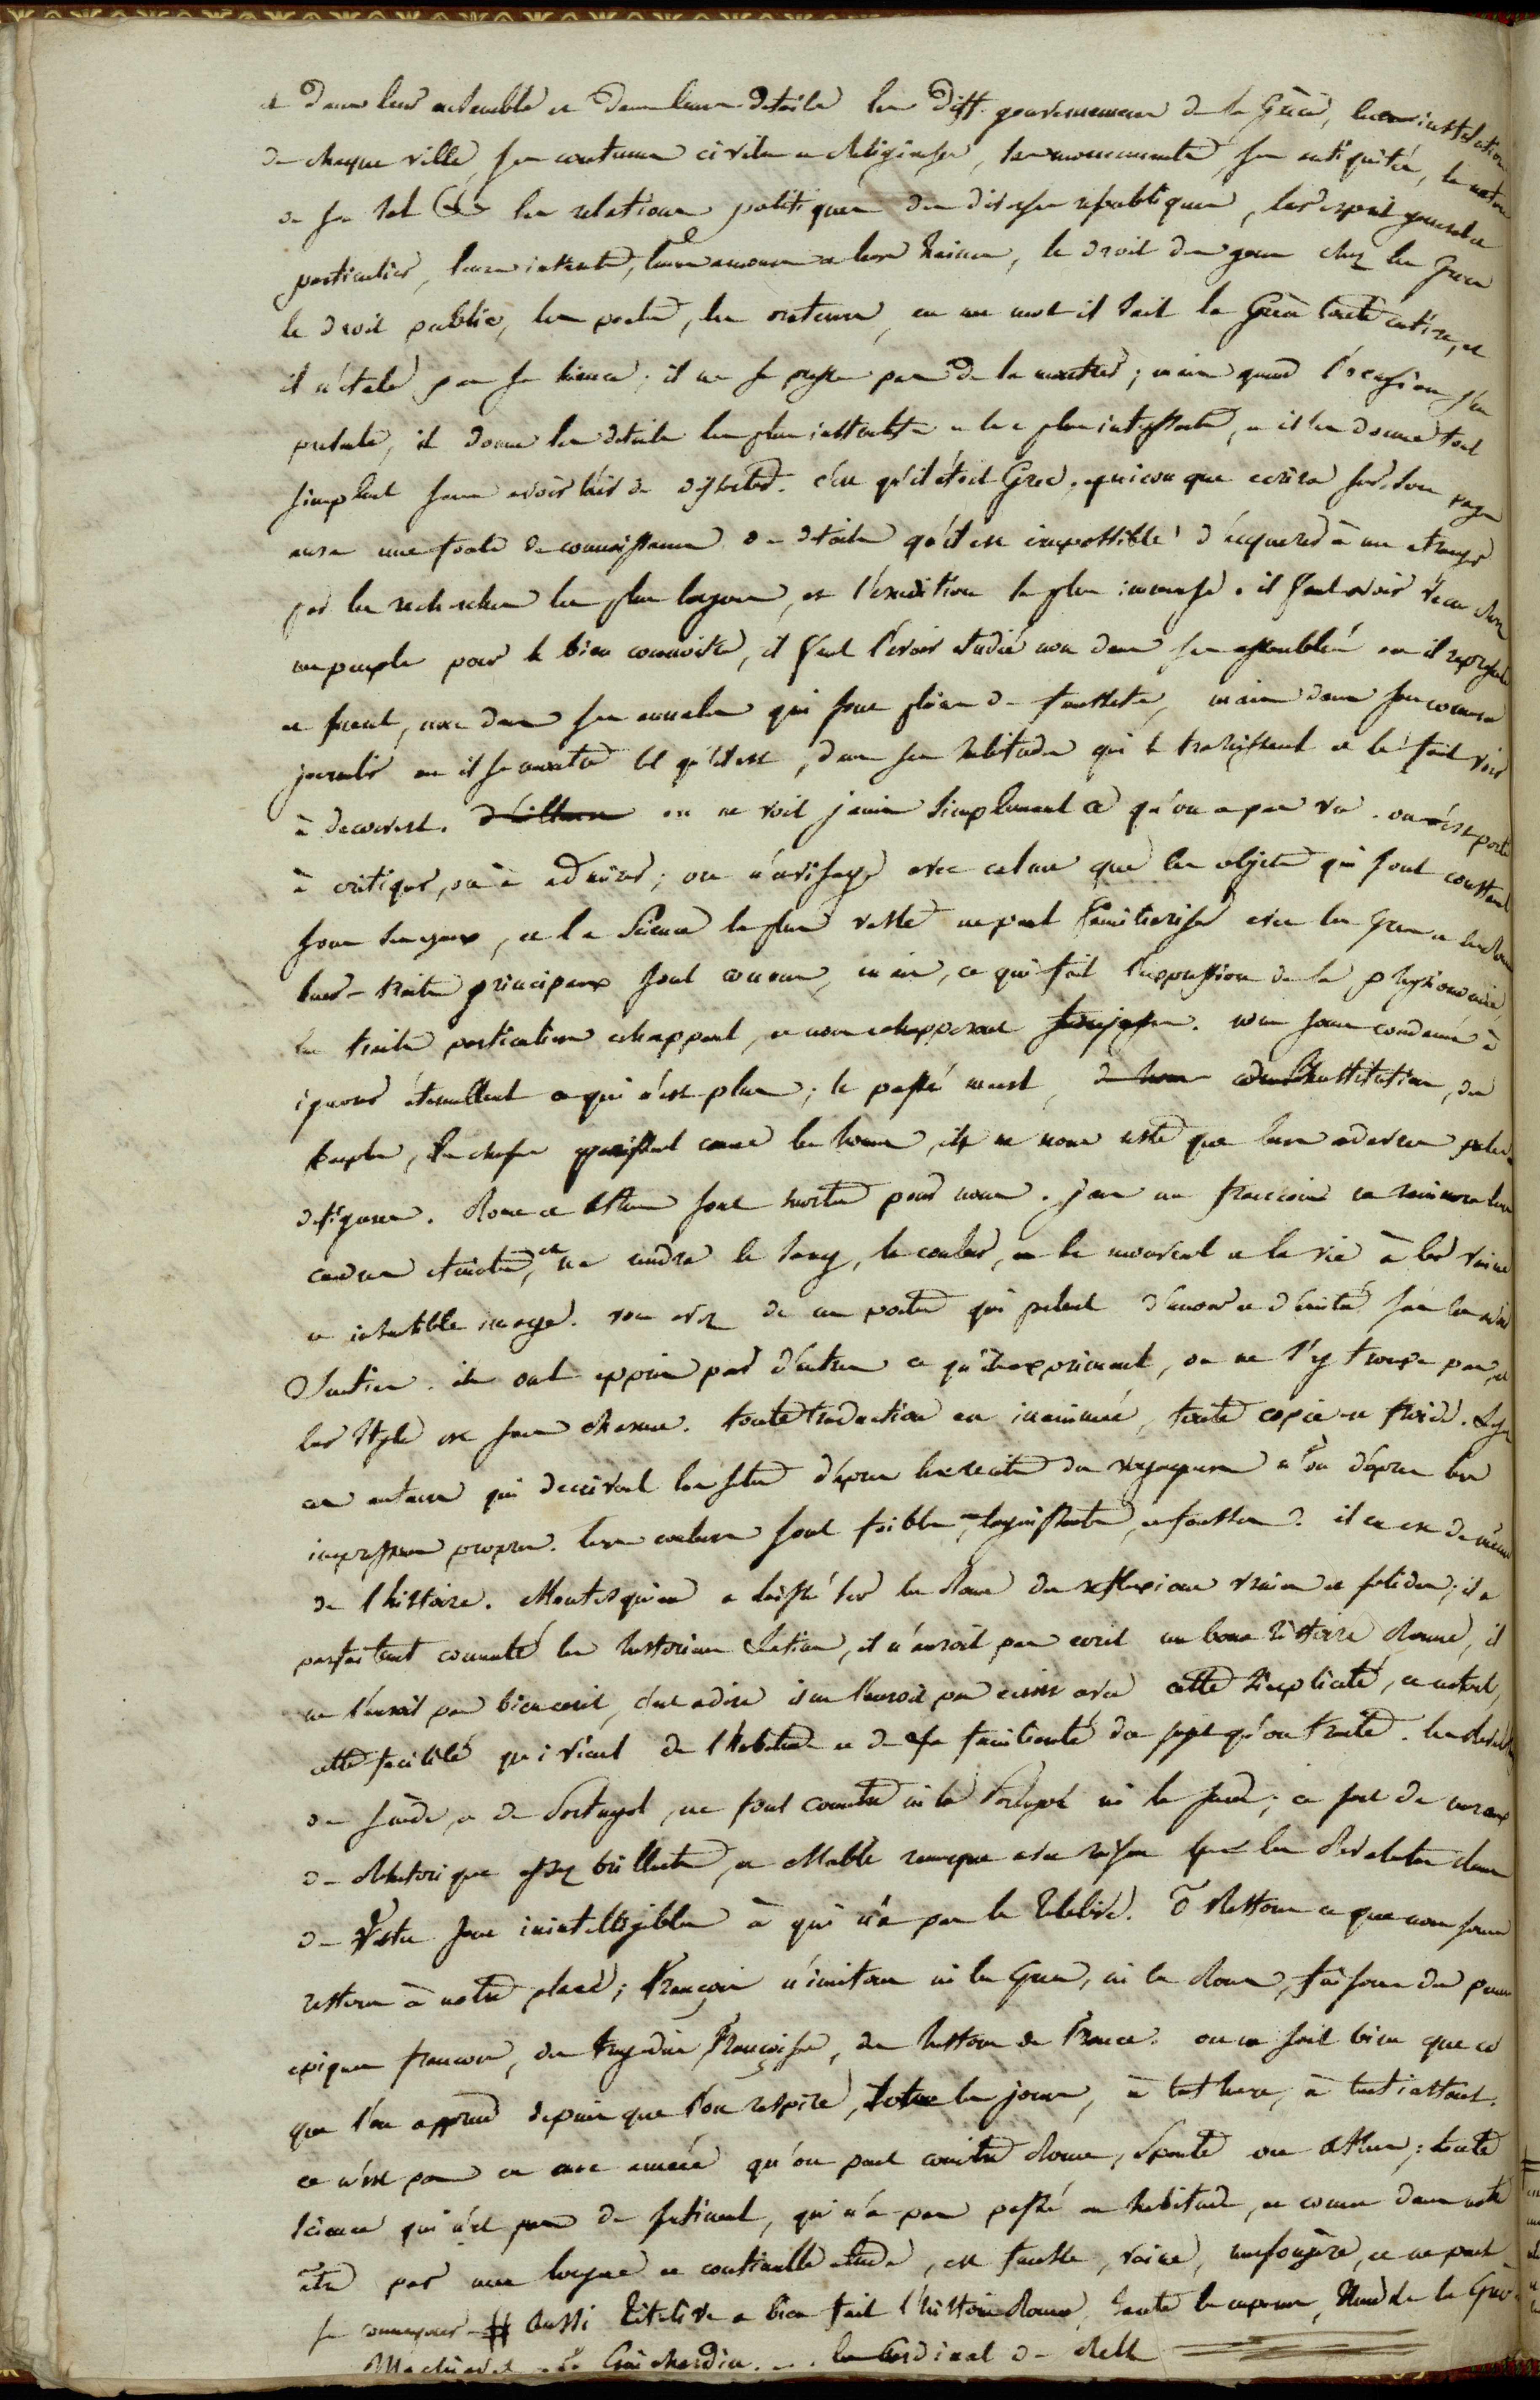 et dans leur ensemble et dans leurs details les diff. gouvernemens de la Grèce, les institutions
de chaque ville, ses coutumes civiles et religieuses, ses monumens, ses antiquités, la nature
de son sol les relations politiques des diverses republiques, leur esprit general et
particulier, leurs interets, leurs amours et leurs haines, le droit des gens chez les Grecs
le droit public, les poetes, les orateurs, en un mot il sait la Grèce toute entiere, et
il n'étale pas sa science; il ne se presse pas de la montrer; mais quand l'occasion s'en
presente, il donne les details les plus instructifs et les plus interessants, et il les donne tout
simplement sans avoir l'air de disserter. c'est qu'il étoit Grec. quiconque ecrira sur son pays
aura une foule de connoissances et de details qu'il est impossible d'acquerir à un etranger
par les recherches les plus longues, et l'erudition la plus immense. il faut avoir vecu dans
un peuple pour le bien connoitre, il faut l'avoir etudié non dans ses assemblées ou il represente
et feint, non dans ses annales qui sont pleines de faussetés, mais dans son commerce
journalier ou il se montre tel qu'il est, dans ses habitudes qui le trahissent et le font voir
à decouvert. d'ailleurs on ne voit jamais simplement ce qu'on a peu vu. on est porté
à critiquer, ou à admirer; on n'envisage avec calme que les objets qui sont constamment
sous ses yeux, et la science la plus vaste ne peut familiariser avec les Grecs et les Romains
leurs traits principaux sont connus, mais, ce qui fait l'expression de la physionomie,
les traits particuliers echappent, et nous echapperont toujours. nous sommes condamnés à
ignorer éternellement ce qui n'est plus; le passé meurt, institutions, des
peuples, les choses perissent comme les hommes, il ne nous reste que leurs cadavres
defigurés. Rome et Athenes sont mortes pour nous. jamais un françois ne ranimera leurs
cendres eteintes, et ne rendra le sang, la couleur, et le mouvement et la vie à leur vaine
et insensible image. vous avez de ces poetes qui parlent d'amour et d'amitié sans les avoir
Sentis. ils ont appris par d'autres ce qu'ils expriment, on ne s'y trompe pas, et
leur style est sans charme. toute traduction est inanimée, toute copie est froide.
ces auteurs qui decrivent les sites d'après les recits des voyageurs et non d'après leurs
impressions propres. leurs couleurs sont foibles, languissantes, et fausses. il en est de même
de l'histoire. Montesquieu a laissé sur les Romains des reflexions vraies et solides; il a
parfaitement commenté les historiens Latins, il n'auroit pas ecrit une bonne histoire Romaine, il
ne l'auroit pas bien ecrit, c'est adire il ne l'auroit pas ecrite avec cette simplicité, ce naturel,
cette facilité qui vient de l'habitude et de la familiarité du sujet qu'on traite. les Revolutions
de Suède, et de Portugal, ne font connoitre ni le Portugal ni la Suede; ce sont des morceaux
de Rhetorique assez brillants, et Mably remarque avec raison que les Revolutions Romaines
de Vertot sont inintelligibles à qui n'a pas lu Titelive. Restons ce que nous sommes
restons à notre place; François n'imitons ni les Grecs, ni les Romains, faisons des poemes
epiques francois, des tragedies Françoises, des histoires de France. on ne sait bien que ce
que l'on apprend depuis que l'on respire, tous les jours, à toute heure, à tout instant.
ce n'est pas en une année qu'on peut connoitre Rome, Sparte ou Athenes; toute
science qui n'est pas de sentiment, qui n'a pas passé en habitude, et comme dans notre
être par une longue et continuelle etude, est fausse, vaine, mensongère, et ne peut
se communiquer # Aussi Titelive a bien fait l'histoire Romaine, Hume de la
Machiavel et Guichardin... le Cardinal de Retz